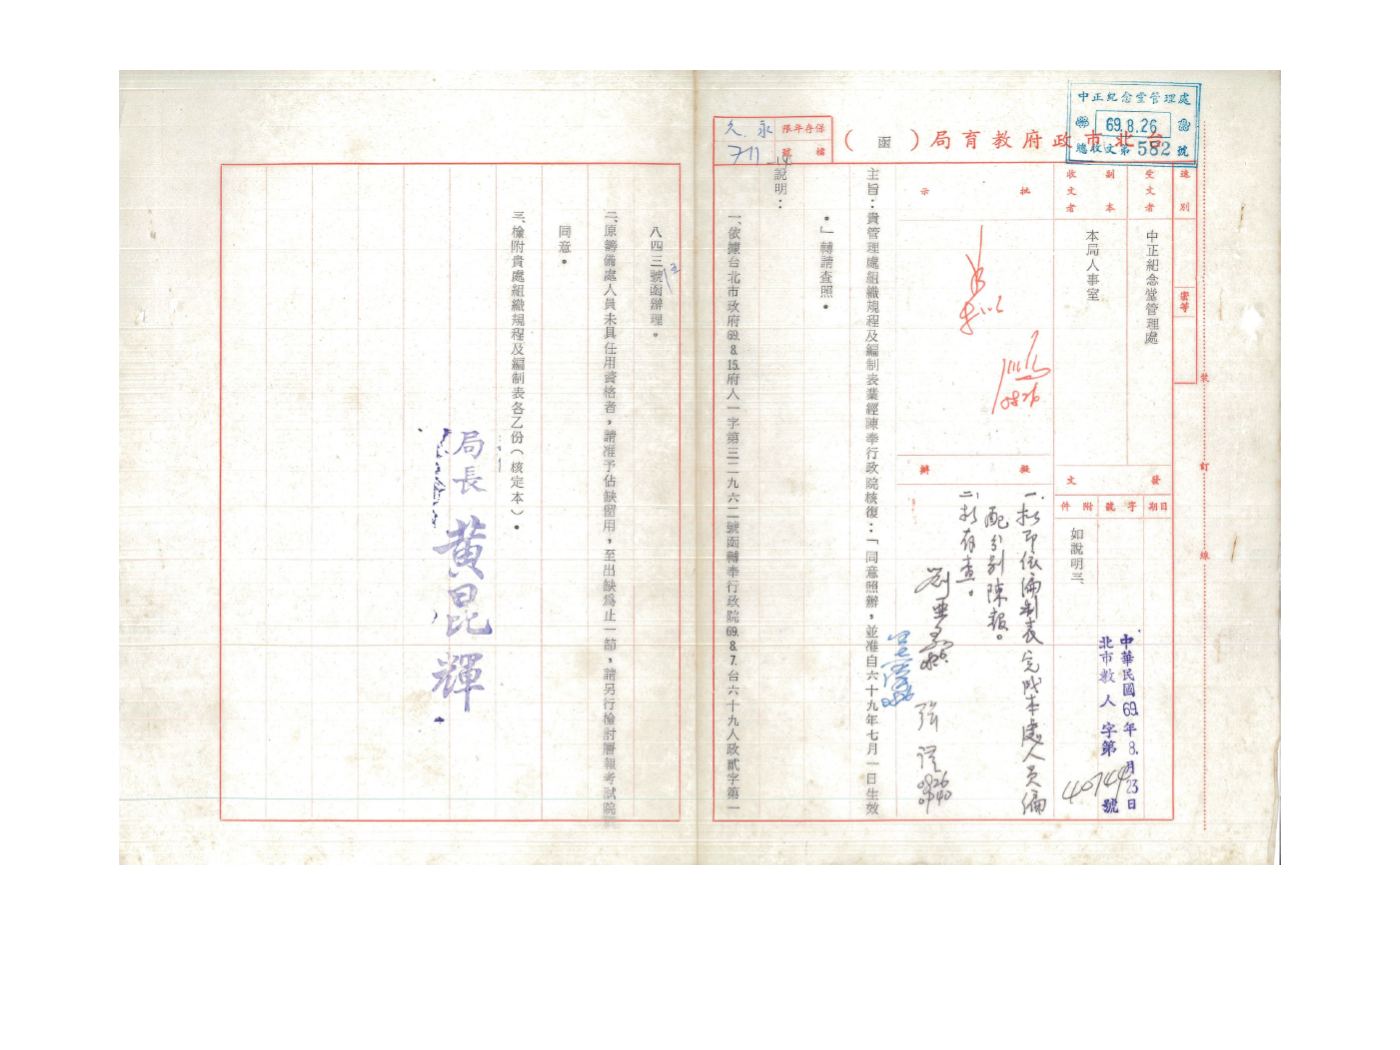 中正紀念堂管理處
69.8.26
總收文第582號
台北市政府教育局(函)
保存年限
永久
檔號
711
速別
密等
受文者
中正紀念堂管理處
副本收文者
本局人事室
發文
日期
字號
附件
中華民國69.年8.月23日
北市教人字第40744號
如說明三、
批示
0826
擬辦
一、擬即依編制表完成本處人員編
配分別陳報。
二、擬存查。
0826
0940
主旨：貴管理處組織規程及編制表業經陳奉行政院核復：「同意照辦，並准自六十九年七月一日生效
。」轉請查照。
說明：
一、依據台北市政府69.8.15.府人一字第三二九六二號函轉奉行政院69.8.7.台六十九人政貳字第一
八四三號函辦理。
二、原籌備處人員未具任用資格者，請准予佔缺留用，至出缺為止一節，請另行檢討層報考試院
同意。
三、檢附貴處組織規程及編制表各乙份（核定本）。
局長 黃昆輝
裝
訂
線